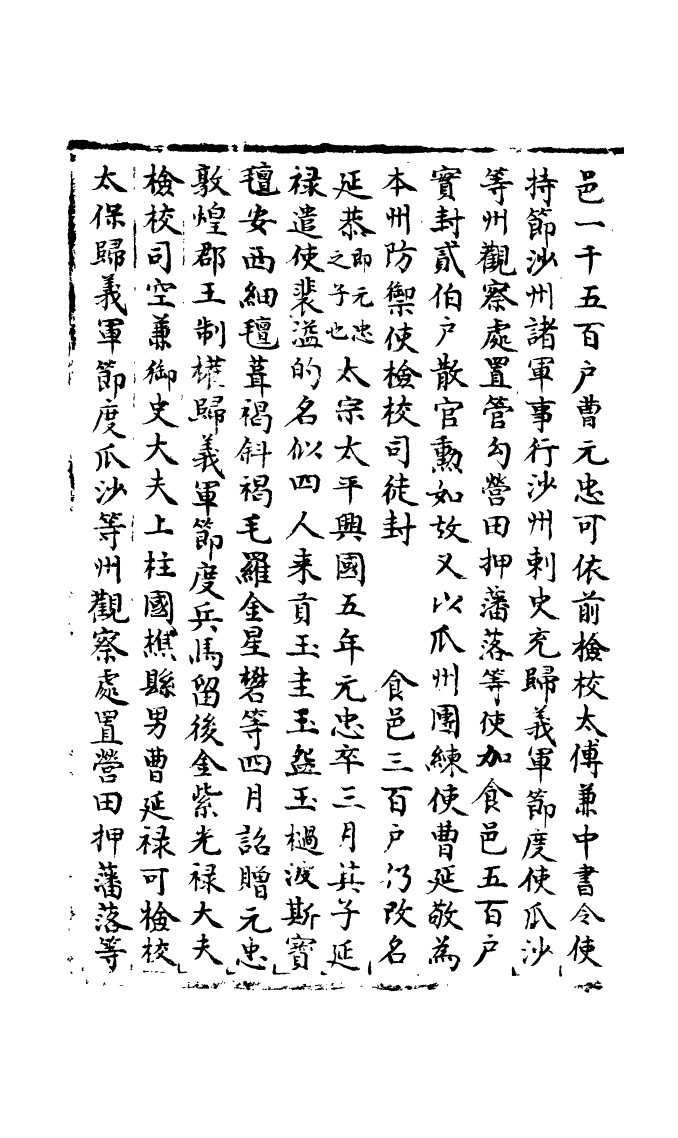 邑一千五百户曹元忠可依前檢校太傅兼中書令使
持節沙州諸軍事行沙州刺史充歸義軍節度使瓜沙
等州觀察處置管勾營田押藩落等使加食邑五百户
實封貳伯户散官勳如故又以瓜州團練使曹延敬為
本州防禦使檢校司徒封　　　食邑三百户仍改名
延恭即元忠之子也太宗太平興國五年元忠卒三月其子延
禄遣使裴溢的名似四人来貢玉圭玉盌玉檛波斯寶
氊安西細氊葺褐斜褐毛羅金星礬等四月詔贈元忠
敦煌郡王制權歸義軍節度兵馬留後金紫光禄大夫
檢校司空兼御史大夫上柱國樵縣男曹延禄可檢校
太保歸義軍節度瓜沙等州觀察處置營田押藩落等